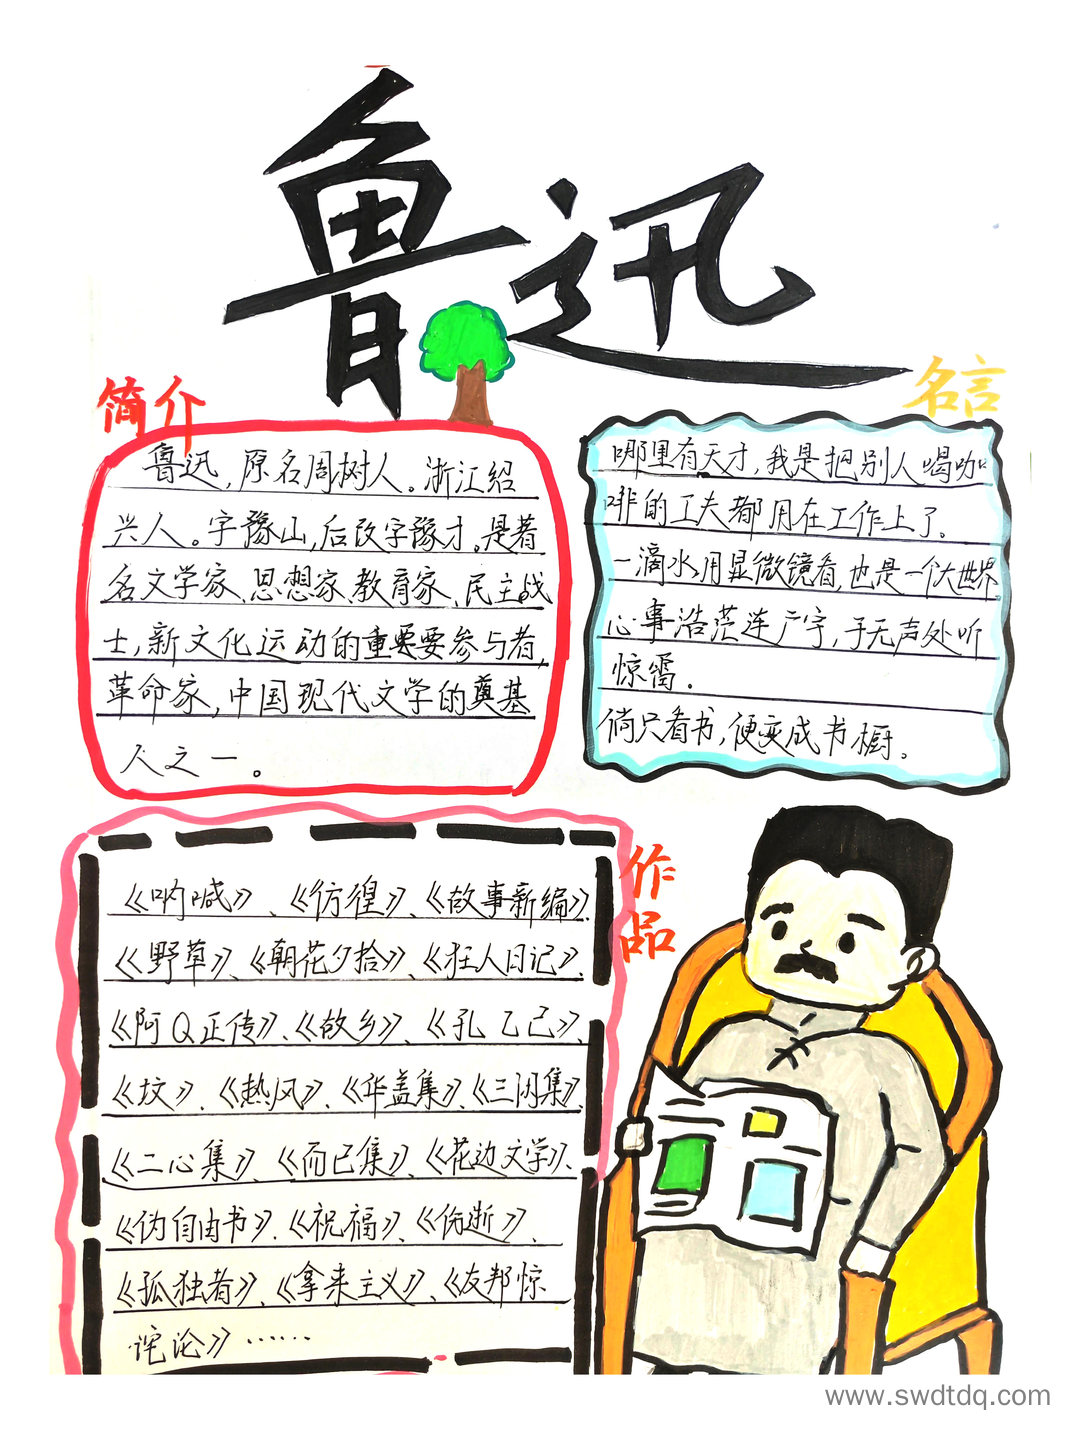 鲁迅
简介
鲁迅,原名周树人。浙江绍
兴人。字豫山,后改字豫才。是著
名文学家、思想家、教育家、民主战
士,新文化运动的重要参与者,
革命家,中国现代文学的奠基
人之一。
名言
哪里有天才,我是把别人喝咖
啡的工夫都用在工作上了。
一滴水,用显微镜看,也是一个大世界
心事浩茫连广宇,于无声处听
惊雷.
倘只看书,便变成书橱。
作品
《呐喊》、《彷徨》、《故事新编》、
《野草》、《朝花夕拾》、《狂人日记》、
《阿Q正传》、《故乡》、《孔乙己》、
《坟》、《热风》、《华盖集》、《三闲集》、
《二心集》、《而已集》、《花边文学》、
《伪自由书》、《祝福》、《伤逝》、
《孤独者》、《拿来主义》、《友邦惊
诧论》……
www.swdtdq.com